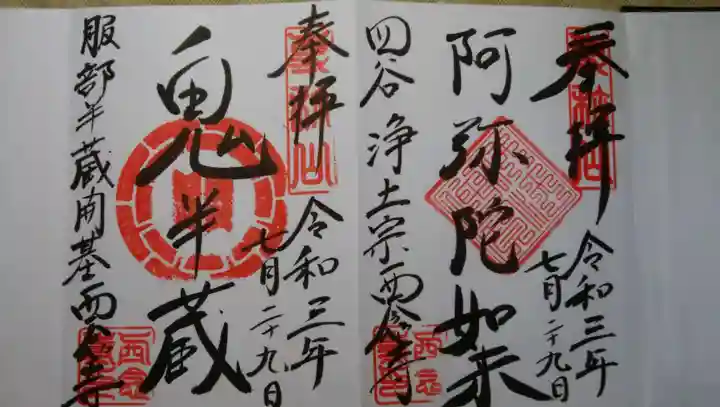 奉拝
令和三年
七月二十九日
阿弥陀如来
四谷 浄土宗 西念寺
奉拝
令和三年
七月二十九日
鬼半蔵
服部半蔵開基 西念寺